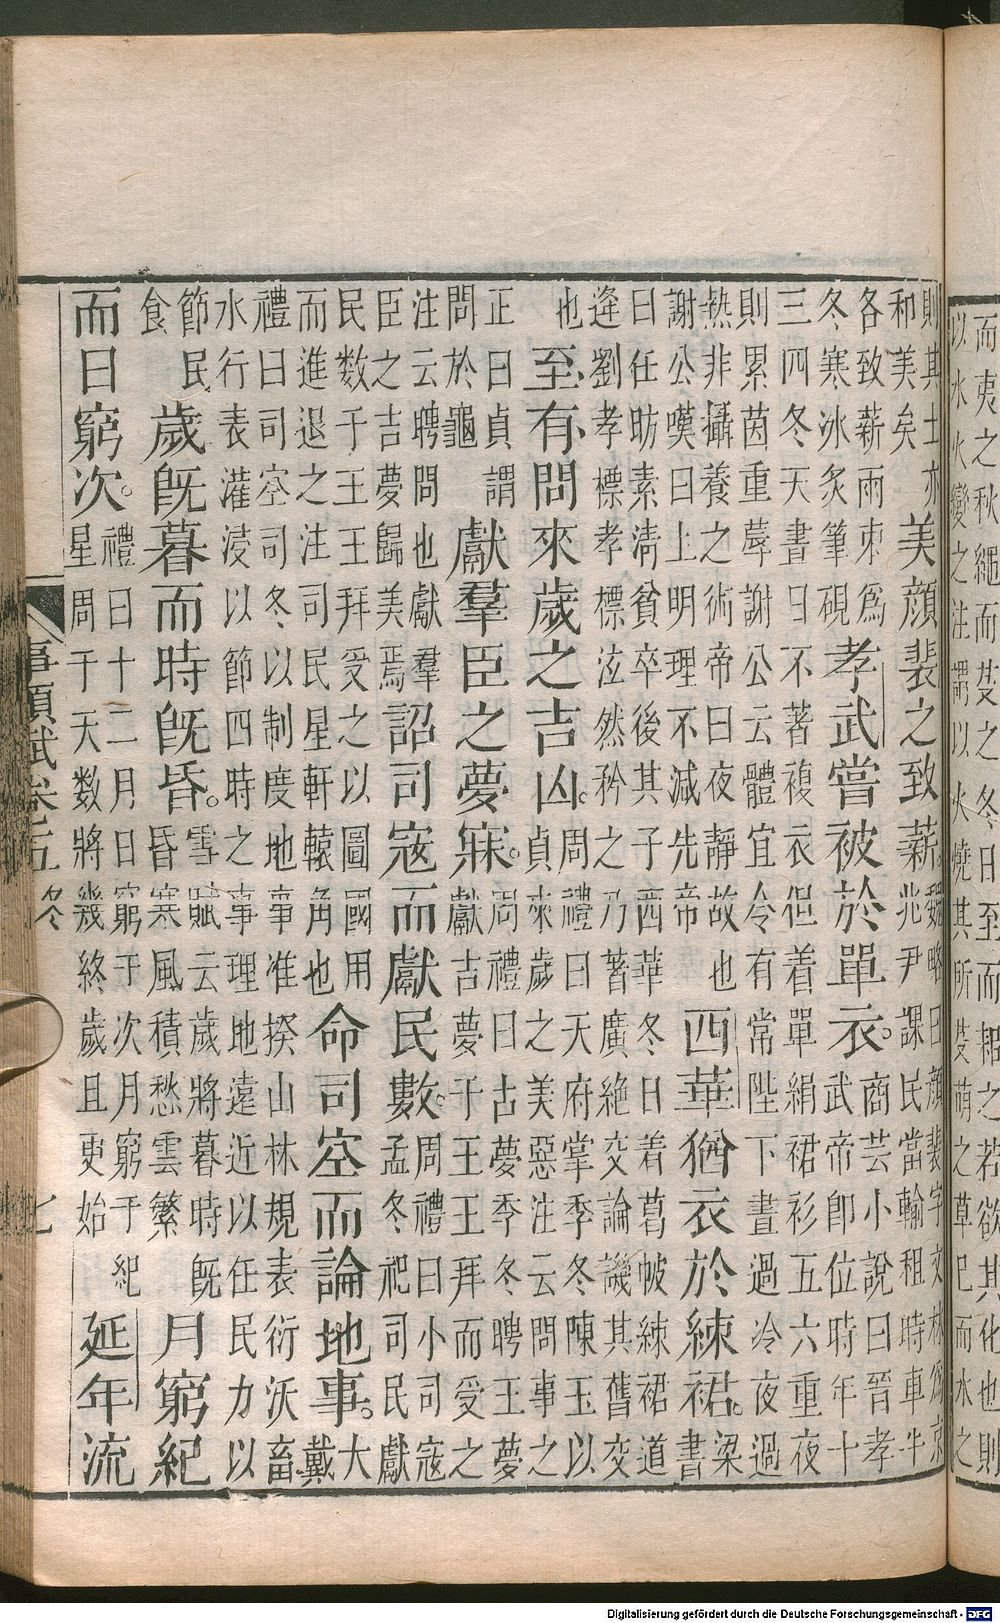 而夷之秋繩而芟之冬日至而耜之若欲其化也則
以水火變之注謂以火燒其所芟萌之草已而水之
則其土亦
和美矣
美顔裴之致薪。
魏略曰顔裴字文林爲京
兆尹課民當輸租時車牛
各致薪雨束爲
冬寒冰炙筆硯
孝武嘗被於單衣。
商芸小說曰晉孝
武帝卽位時年十
三四冬天書日不著複衣但着單絹裙衫五六重夜
則累茵重蓐謝公云體宜令有常陛下晝過冷夜過
熱非攝養之術帝曰夜靜故也
謝公嘆曰上明理不減先帝
西華猶衣於練裙。
梁
書
曰任昉素清貧卒後其子西華冬日着葛帔練裙道
逢劉孝標孝標泫然矜之乃著廣絶交論譏其舊交
也
至有問來歲之吉凶。
周禮曰天府掌季冬陳玉以
貞來歲之美惡注云問事之
正曰貞謂
問於龜
獻羣臣之夢寐。
周禮曰古夢季冬聘王夢
獻吉夢于王王拜而受之
注云聘問也獻羣
臣之吉夢歸美焉
詔司寇而獻民數。
周禮曰小司寇
孟冬祀司民獻
民數于王王拜受之以圖國用
而進退之注司民星軒轅角也
命司空而論地事。
大
戴
禮曰司空司冬以制度地事准揆山林規表衍沃畜
水行表灌浸以節四時之事理地遠近以任民力以
節民
食
歲旣暮而時旣昏。
雪賦云歲將暮時旣
昏寒風積愁雲繁
月窮紀
而日窮次。
禮曰十二月日窮于次月窮于紀
星周于天數將幾終歲且更始
延年流
事類賦卷之五 冬 七
Digitalisierung gefördert durch die Deutsche Forschungsgemeinschaft - DFG